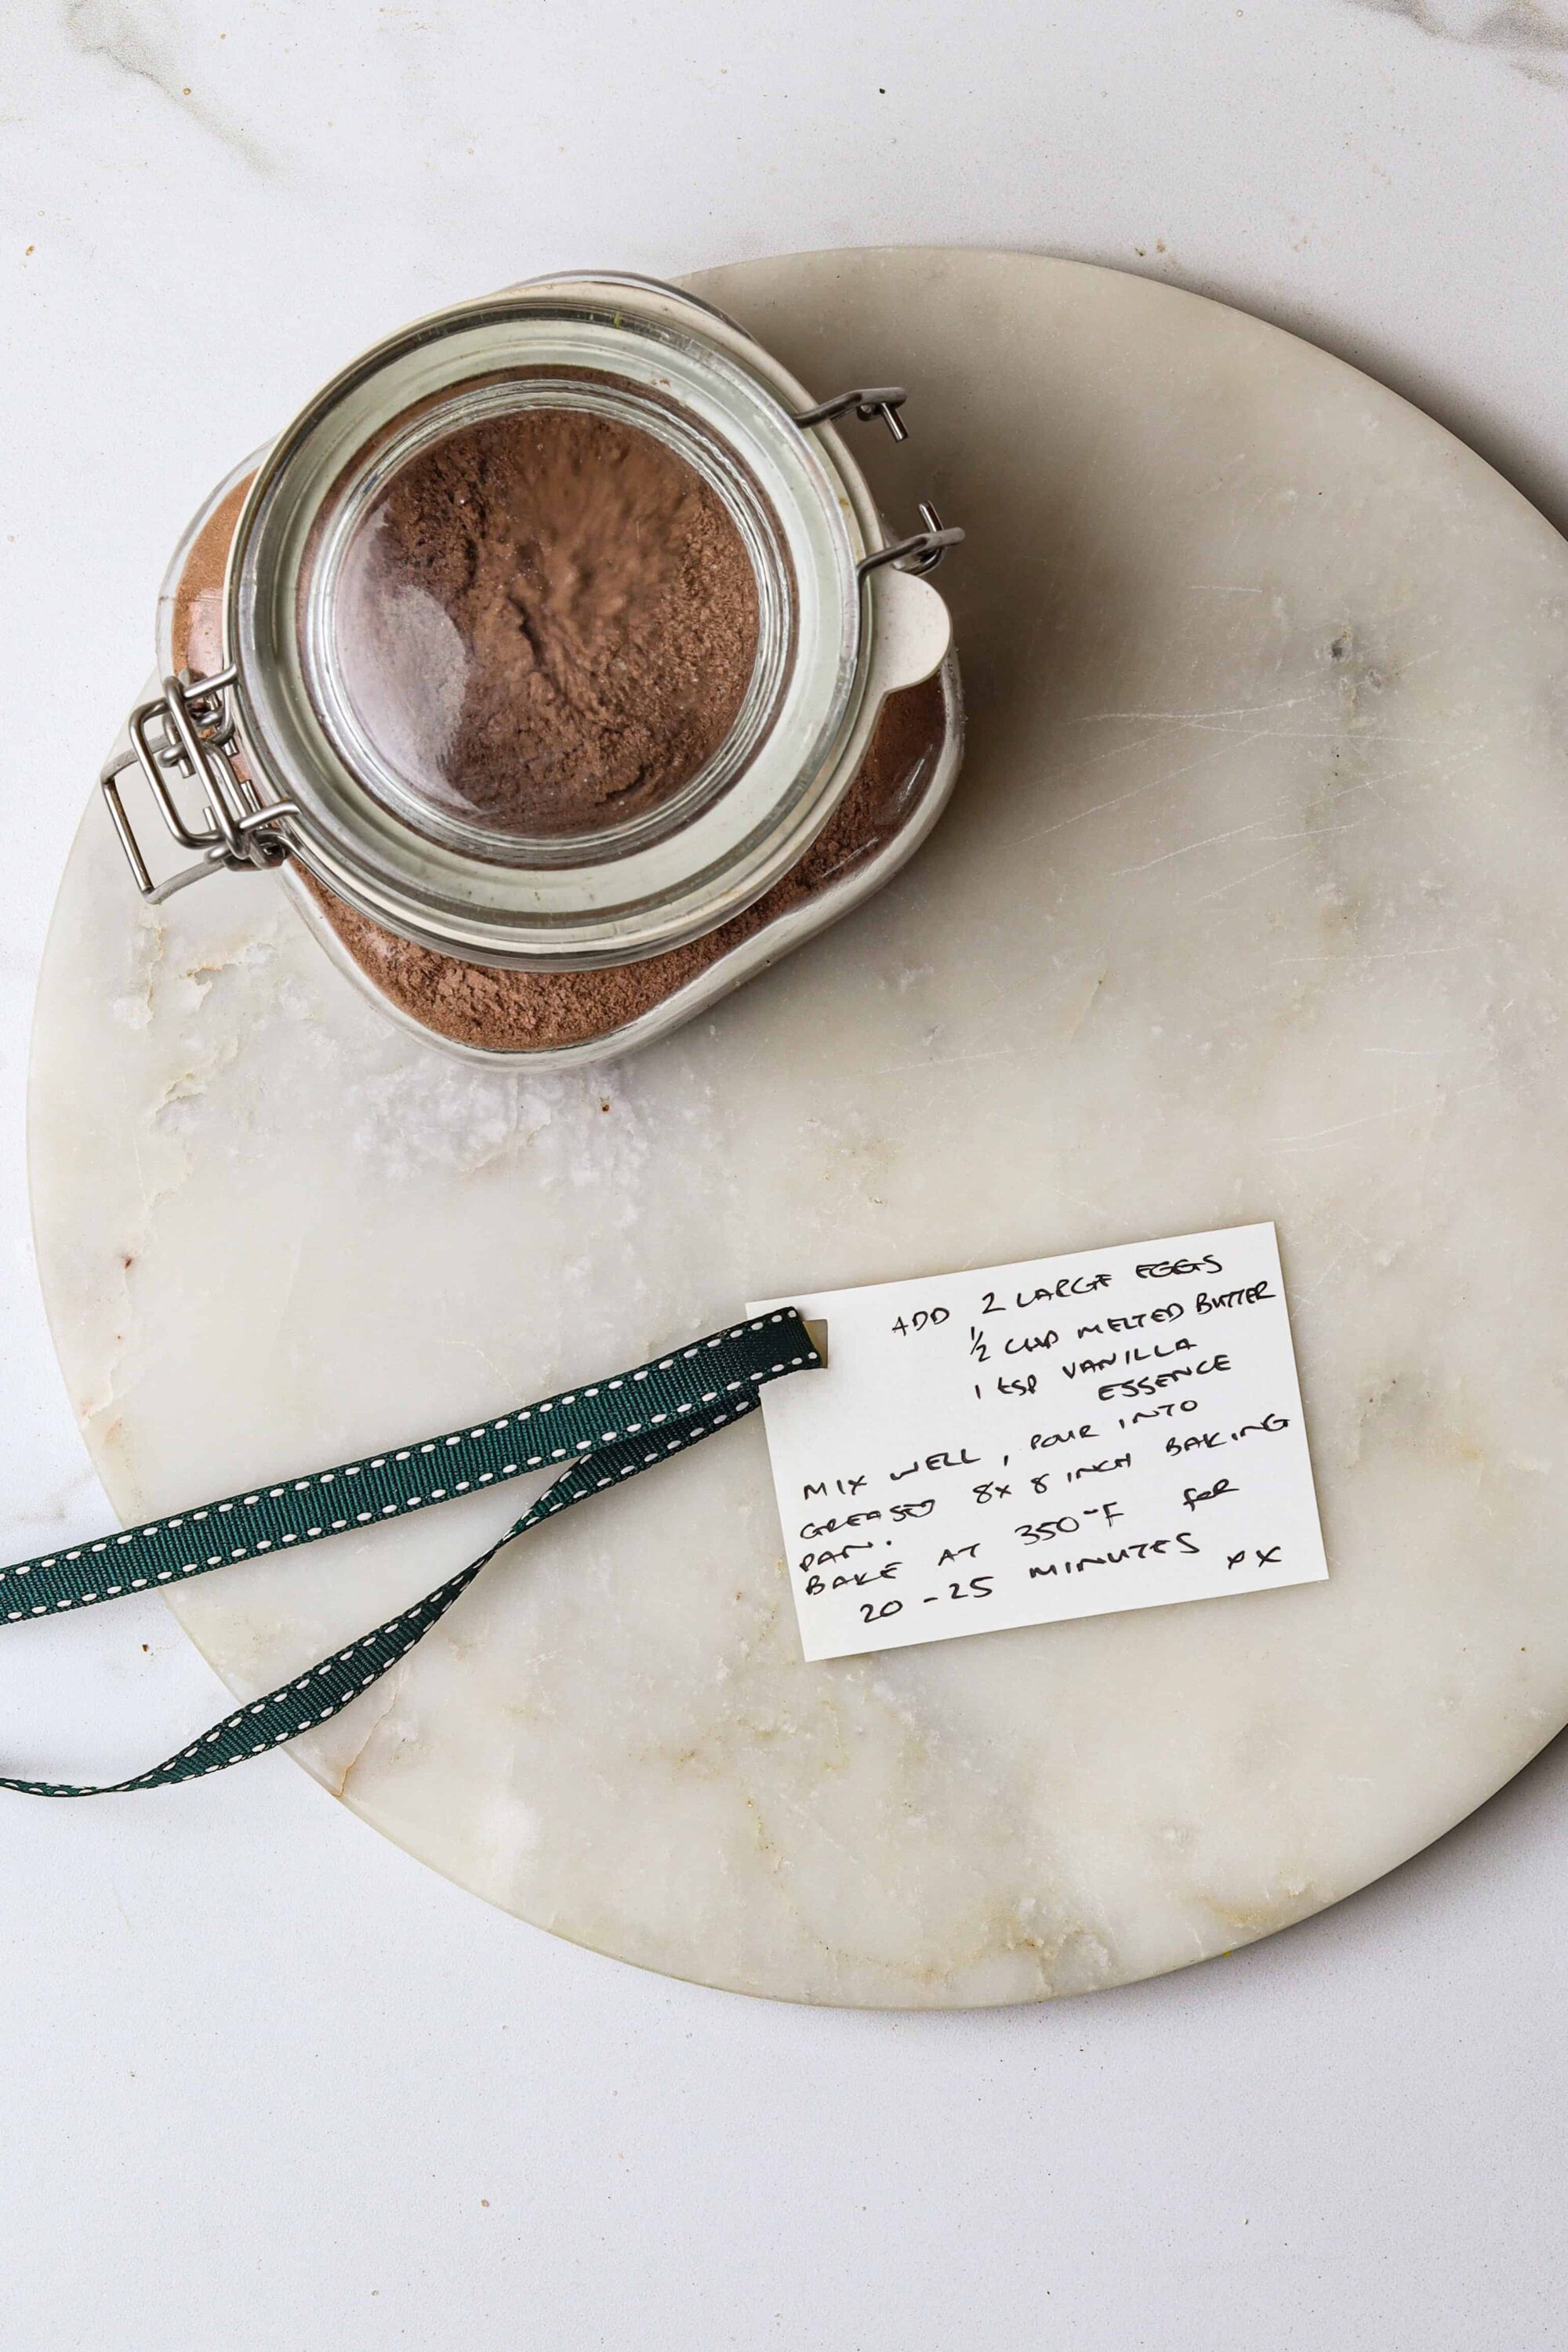 ADD 2 LARGE EGGS
½ CUP MELTED BUTTER
1 tSP VANILLA
ESSENCE
MIX WELL, POUR INTO
GREASED 8x8 INCH BAKING
PAN.
BAKE AT 350°F foR
20-25 MINUTES XX